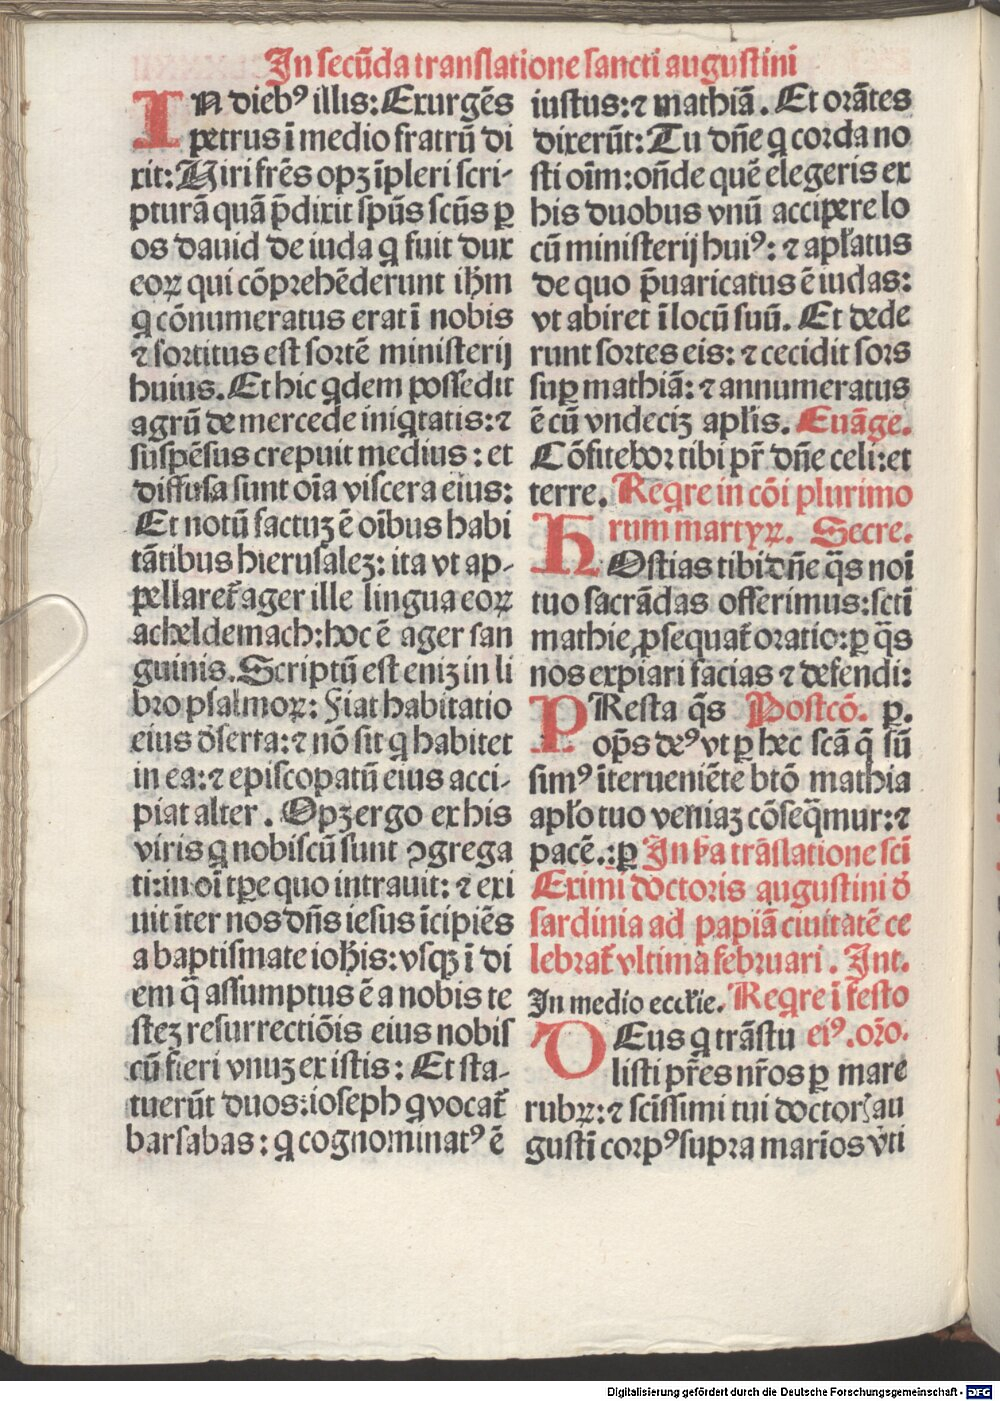 In secūda translatione sancti augustini
IN diebꝰ illis: Exurgēs
petrus ī medio fratrū di
xit: Viri frēs opꝫ īpleri scri-
pturā quā p̄dixit spūs scūs ꝑ
os dauid de iuda q̇ fuit dux
eoꝝ qui cōprehēderunt ih̄m
q̇ cōnumeratus erat ī nobis
⁊ sortitus est sortē ministerij
huius. Et hic q̇dem possedit
agrū de mercede iniq̇tatis: ⁊
suspēsus crepuit medius: et
diffusa sunt oīa viscera eius:
Et notū factuꝫ ē oībus habi
tātibus hierusaleꝫ: ita vt ap-
pellaret̄ ager ille lingua eoꝝ
acheldemach: hoc ē ager san
guinis. Scriptū est eniꝫ in li
bro psalmoꝝ: Fiat habitatio
eius d̄serta: ⁊ nō sit q̇ habitet
in ea: ⁊ episcopatū eius acci-
piat alter. Opꝫ ergo ex his
viris q̇ nobiscū sunt ꝯgrega
ti: in oī tꝑe quo intrauit: ⁊ exi
uit īter nos dn̄s iesus īcipiēs
a baptismate ioh̄is: vsqꝫ ī di
em q̄ assumptus ē a nobis te
steꝫ resurrectiōis eius nobis
cū fieri vnuꝫ ex istis: Et sta-
tuerūt duos: ioseph q̇ vocat̄
barsabas: q̇ cognominatꝰ ē
iustus: ⁊ mathiā. Et orātes
dixerūt: Tu dn̄e q̇ corda no
sti oīm: on̄de quē elegeris ex
his duobus vnū accipere lo
cū ministerij huiꝰ: ⁊ apl̄atus
de quo p̄uaricatus ē iudas:
vt abiret ī locū suū. Et dede
runt sortes eis: ⁊ cecidit sors
suꝑ mathiā: ⁊ annumeratus
ē cū vndeciꝫ apl̄is. Euāge.
Cōfitebor tibi pr̄ dn̄e celi: et
terre. Req̇re in cōi plurimo
rum martyꝝ. Secre.
HOstias tibi dn̄e q̄s noī
tuo sacrādas offerimus: scti
mathie ꝓsequat̄ oratio: ꝑ q̄s
nos expiari facias ⁊ defendi:
PResta q̄s Postcō. ꝑ.
op̄s deꝰ vt ꝑ hec scā q̄ sū
simꝰ īterueniēte btō mathia
apl̄o tuo veniaꝫ cōseq̄mur: ⁊
pacē.: ꝑ In p̄a trāslatione scī
Eximi doctoris augustini d̄
sardinia ad papiā ciuitatē ce
lebrat̄ vltima februari. Int.
In medio eccl̄ie. Req̇re ī festo
DEus q̇ trāstu eiꝰ. or̄o.
listi pr̄es nr̄os ꝑ mare
rubꝝ: ⁊ sc̄issimi tui doctorꝭ au
gustī corpꝰ supra mar̄ios vti
Digitalisierung gefördert durch die Deutsche Forschungsgemeinschaft - DFG